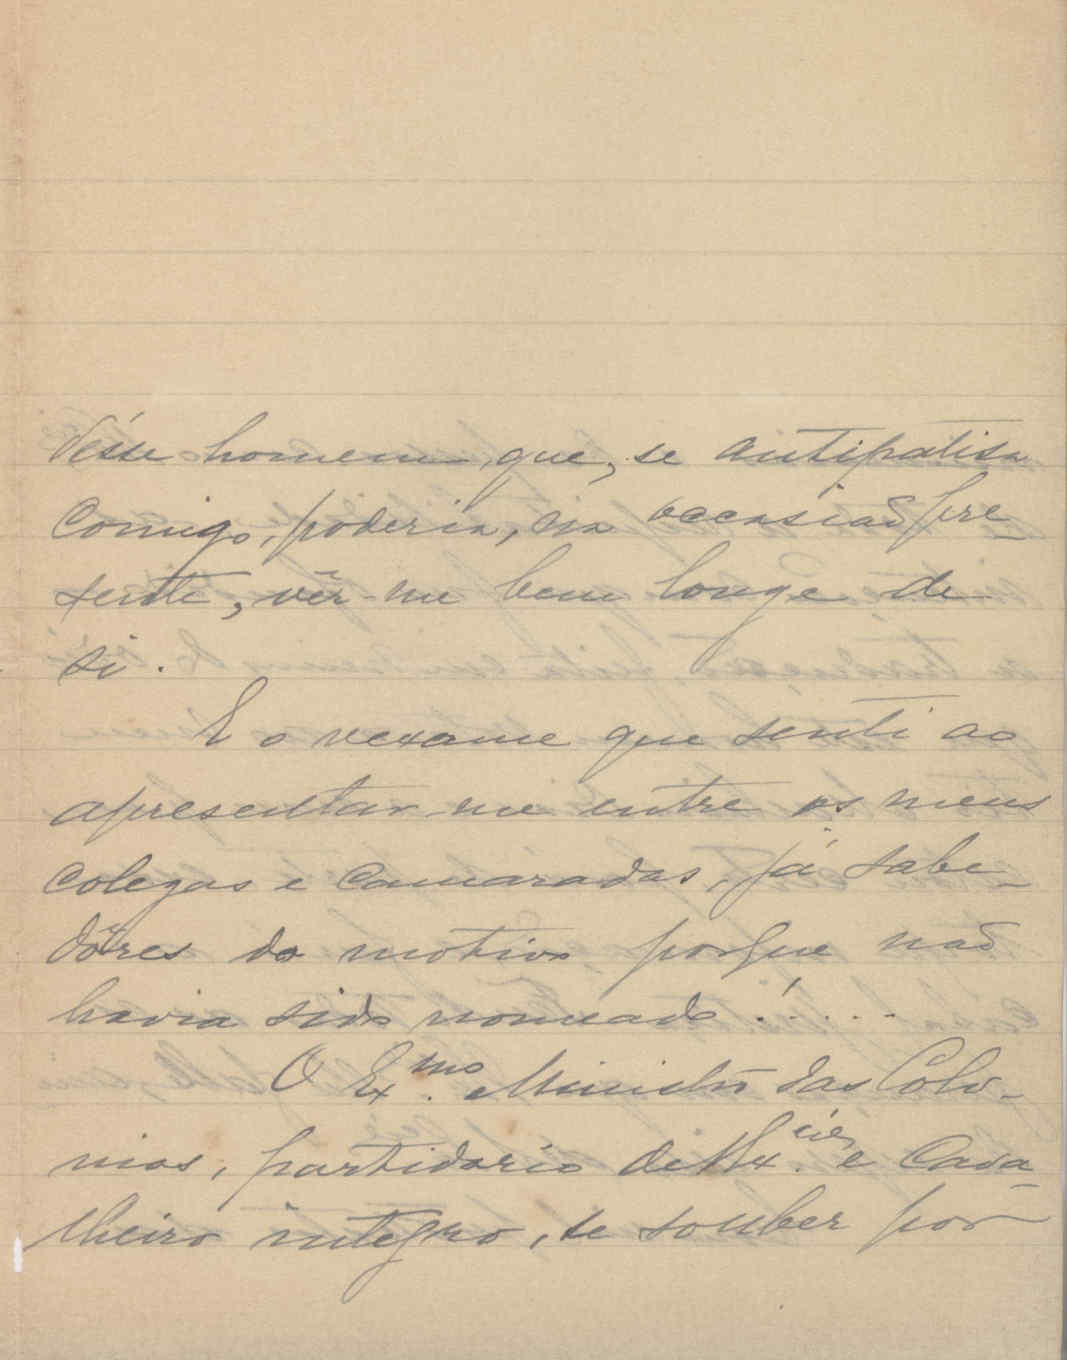 dêsse homem que, se antipatisa
comigo, poderia, na occasião pre-
sente, vêr-me bem longe de
si.
E o vexame que senti ao
apresentar-me entre os meus
colegas e camaradas, já sabe-
dôres do motivo porque não
havia sido nomeado!....
O Ex.mo Ministro das Colo-
nias, partidario de V. Ex.cia e cava-
lheiro integro, se souber por